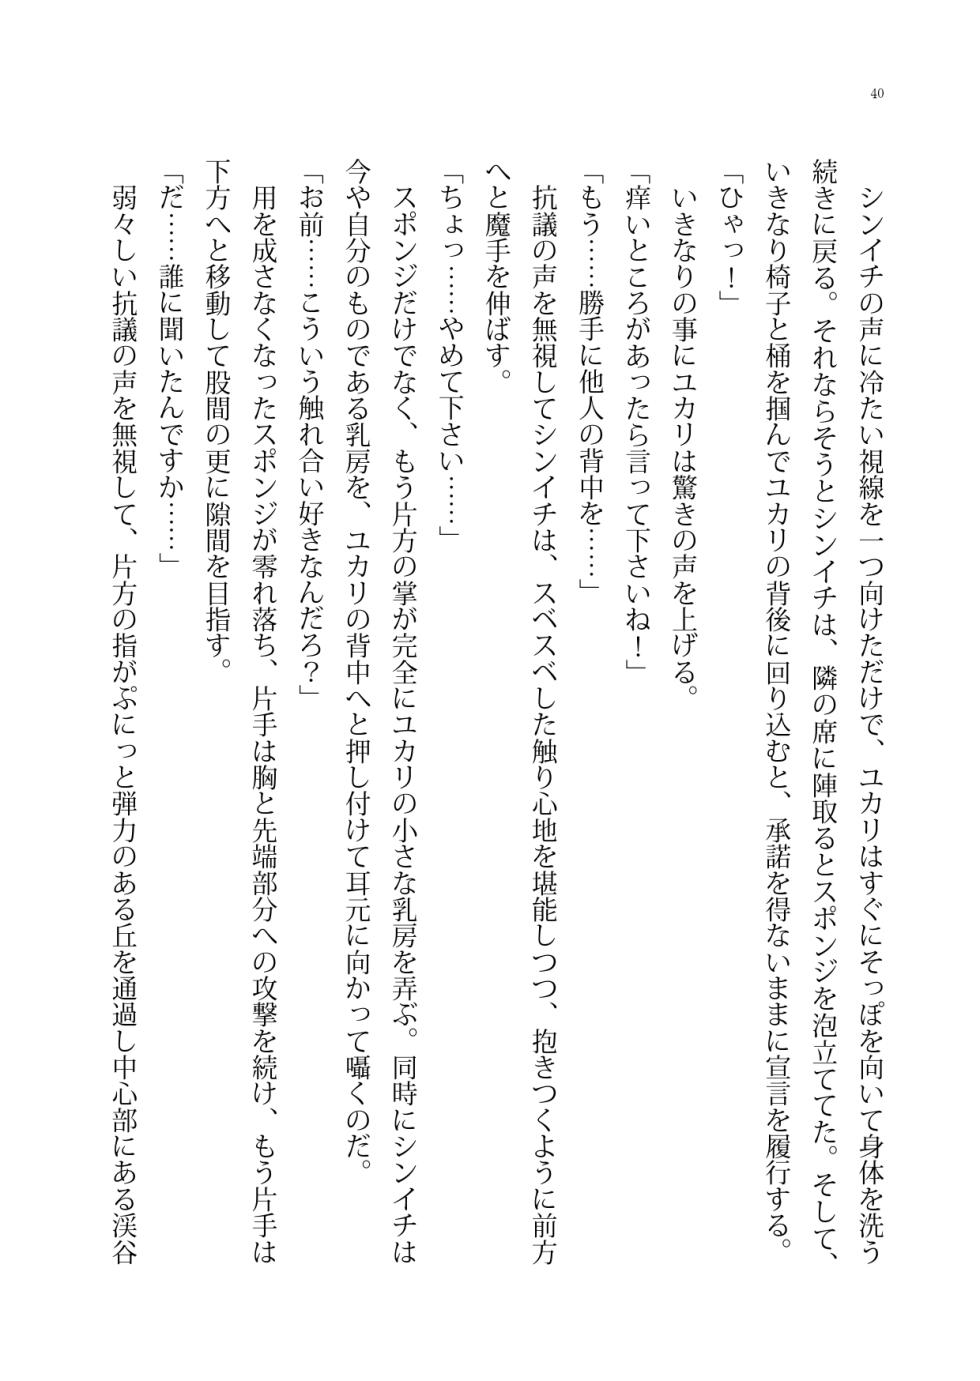 40
シンイチの声に冷たい視線を一つ向けただけで、ユカリはすぐにそっぽを向いて身体を洗う
続きに戻る。それならそうとシンイチは、隣の席に陣取るとスポンジを泡立ててた。そして、
いきなり椅子と桶を掴んでユカリの背後に回り込むと、承諾を得ないままに宣言を履行する。
「ひゃっ！」
いきなりの事にユカリは驚きの声を上げる。
「痒いところがあったら言って下さいね！」
「もう……勝手に他人の背中を……」
抗議の声を無視してシンイチは、スベスベした触り心地を堪能しつつ、抱きつくように前方
へと魔手を伸ばす。
「ちょっ……やめて下さい……」
スポンジだけでなく、もう片方の掌が完全にユカリの小さな乳房を弄ぶ。同時にシンイチは
今や自分のものである乳房を、ユカリの背中へと押し付けて耳元に向かって囁くのだ。
「お前……こういう触れ合い好きなんだろ？」
用を成さなくなったスポンジが零れ落ち、片手は胸と先端部分への攻撃を続け、もう片手は
下方へと移動して股間の更に隙間を目指す。
「だ……誰に聞いたんですか……」
弱々しい抗議の声を無視して、片方の指がぷにっと弾力のある丘を通過し中心部にある渓谷